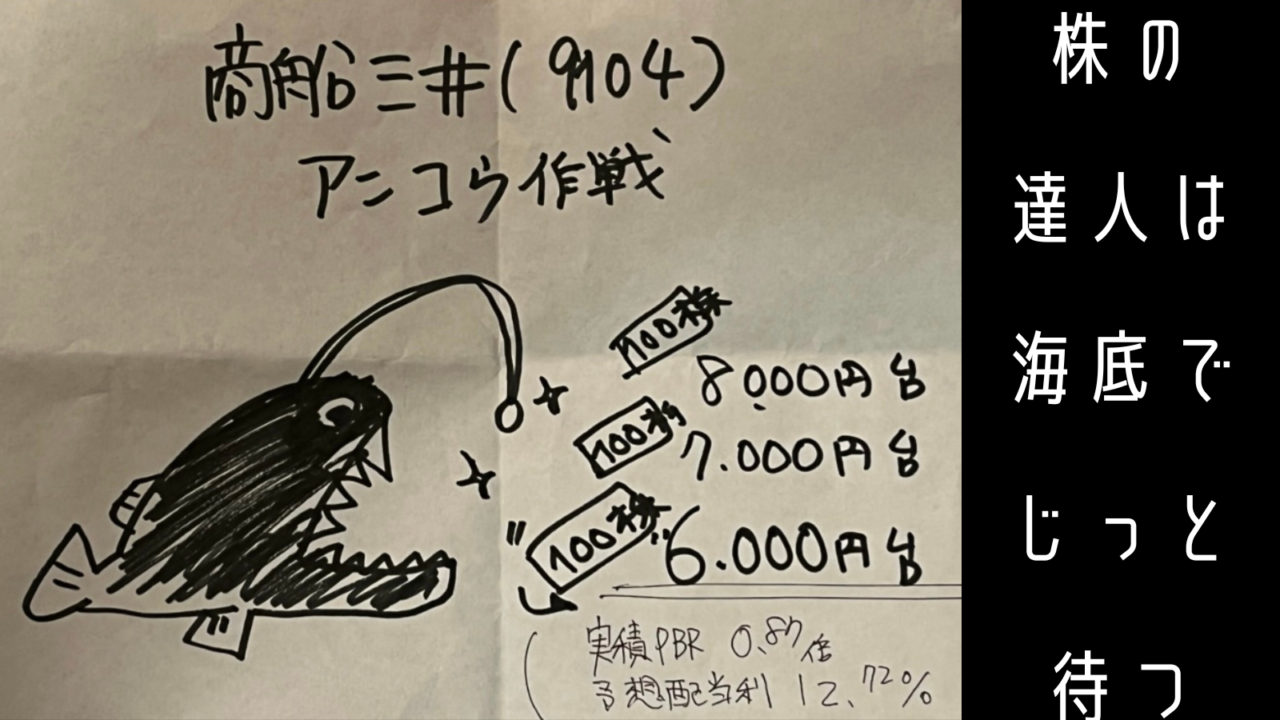 商船三井(9104)
アンコウ作戦
100株
8.000円台
100株
7.000円台
"100株"
6.000円台
実積PBR 0.87倍
予想配当利 12.72%
株の
達人は
海底で
じっと
待つ